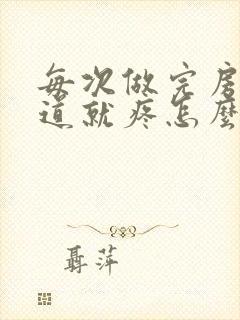 每次做完房
道就疼怎麼
聶萍